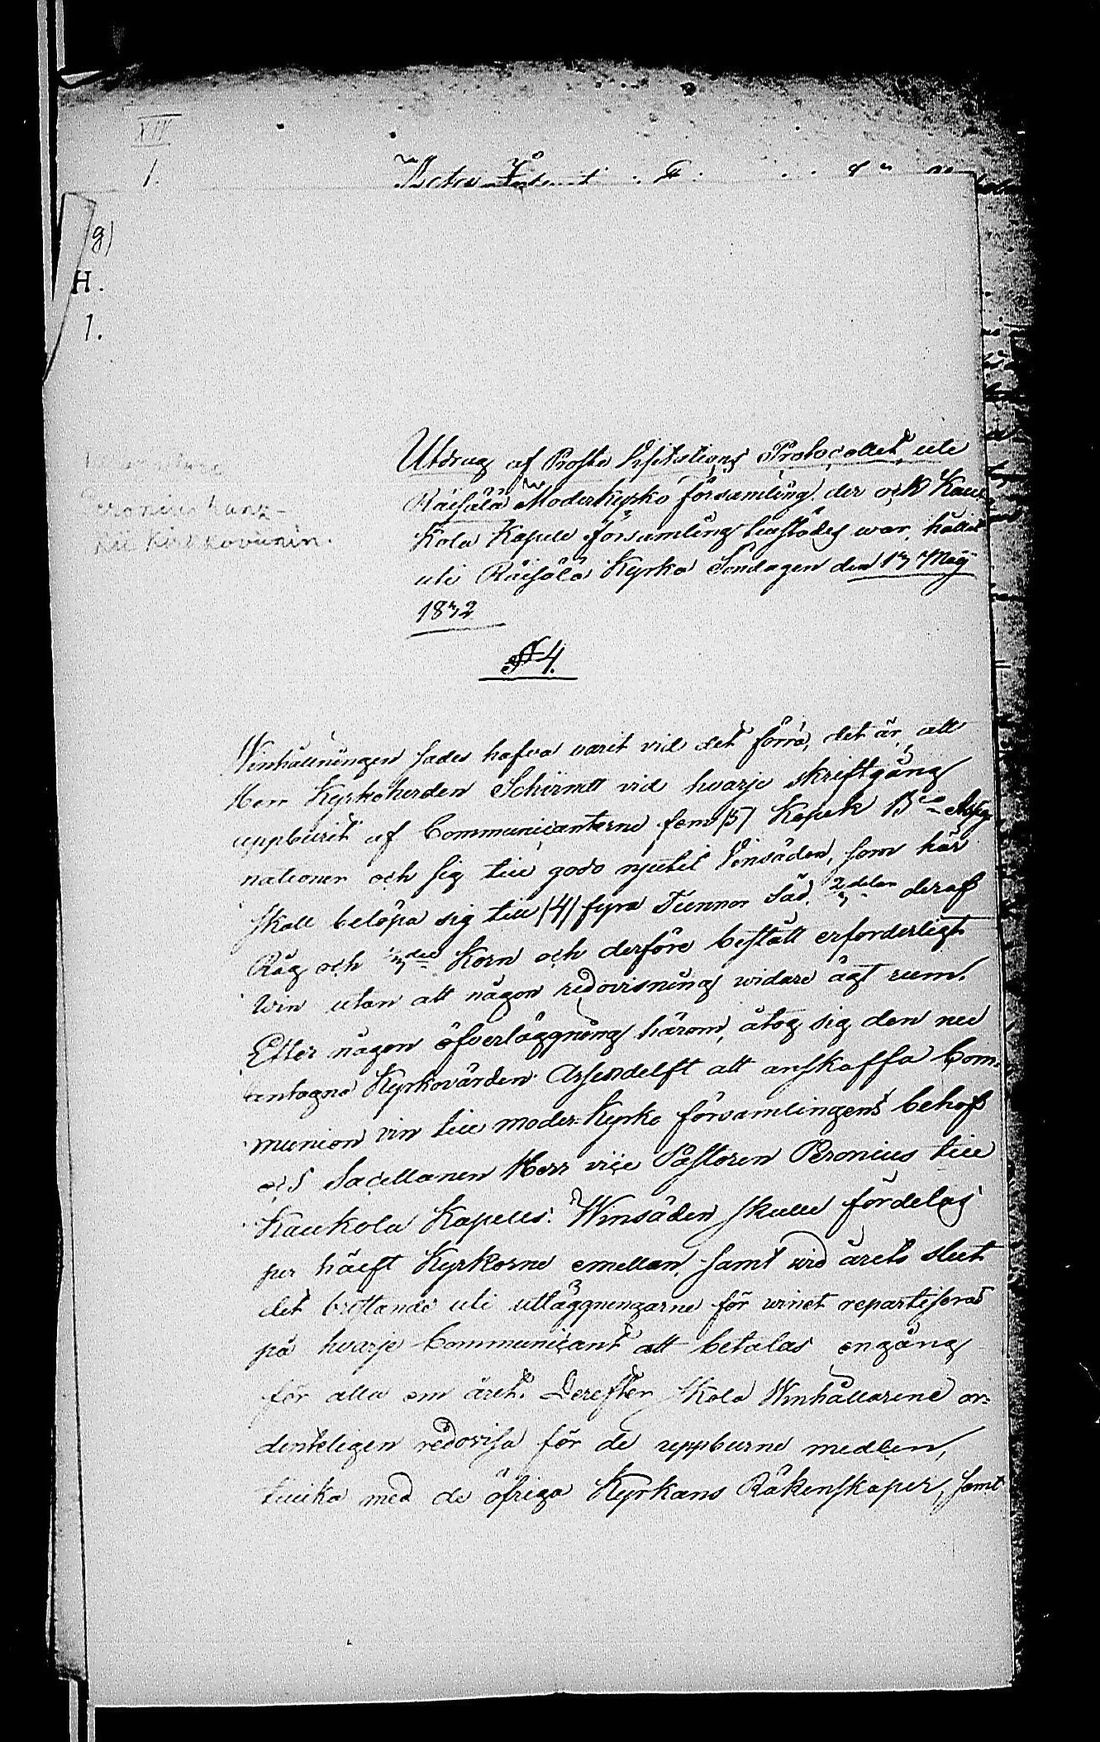 XIII
1.
g)
H.
1.
Peronius hank-
kii kirkkoviinin.
Utdrag af Prosts Visitations Protocollet uti
Räisälä Moderkyrko församling, der ock Kau-
kola Kapell församling tillstädes war, hållit
uti Räisälä Kyrka Söndagen den 13 Maij
1832
§ 4.
Winhållningen sades hafva varit vid det förra, det är, att
Herr Kyrkoherden Schirmdt vid hvarje skriftgång
uppburit af Communicanterne fem /5/ Kopek Bco Assig
nationer och sig till godo njutit Vinsäden, som här
skall belöpa sig till /4/ fyra Tunnor Säd, 2/3 delar deraf
Råg och 1/3 del Korn och derföre bestått erforderligt
Win utan att någon redovisning widare ägt rum.
Efter någon öfverläggning härom, åtog sig den nu
antagne Kyrkovärden Arsendelft att anskaffa Com-
munion vin till moder-Kyrko församlingens behof
och Sacellanen Herr vice Pastoren Peronius till
Kaukola Kapells. Winsäden skulle fördelas
per hälft Kyrkorne emellan, samt wid årets slut
det bristande uti utläggningarne för winet repartiseras
på hvarje Communicant att betalas en gång
för alla om året. Derefter skola Winhållarene or-
denteligen redovisa för de uppburne medlen,
tillika med de öfriga Kyrkans Räkenskaper, samt